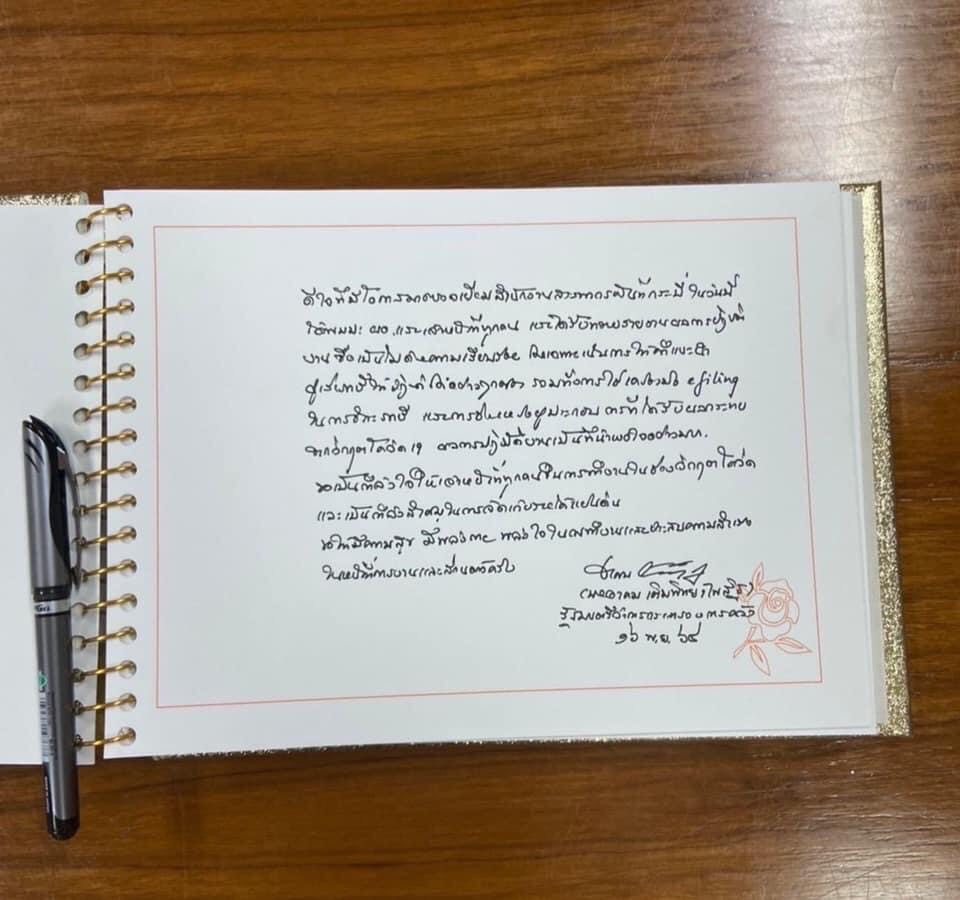 ดีใจที่มีโอกาสมาตรวจเยี่ยมสำนักงานสรรพากรพื้นที่กระบี่ ในวันนี้
ได้พบปะ ผอ. และเจ้าหน้าที่ทุกคน และได้รับทราบรายงานผลการปฏิบัติ
งาน ซึ่งเป็นไปด้วยความเรียบร้อย เป็นการให้คำแนะนำ
ผู้เสียภาษีให้ปฏิบัติได้อย่างถูกต้อง รวมทั้งการใช้ efiling
ในการชำระภาษี และการช่วยเหลือผู้ประกอบการที่ได้รับผลกระทบ
จากวิกฤตโควิด 19 ผลการปฏิบัติงานเป็นที่น่าพอใจอย่างมาก.
ขอเป็นกำลังใจให้เจ้าหน้าที่ทุกคนในการทำงานในช่วงวิกฤตโควิด
และเป็นกำลังสำคัญในการจัดเก็บรายได้แผ่นดิน
ขอให้มีความสุข มีพลังกาย พลังใจในการทำงานและประสบความสำเร็จ
ในหน้าที่การงานและส่วนตัวครับ
(นายอาคม เติมพิทยาไพสิฐ)
รัฐมนตรีว่าการกระทรวงการคลัง
๑๖ พ.ย. ๖๔